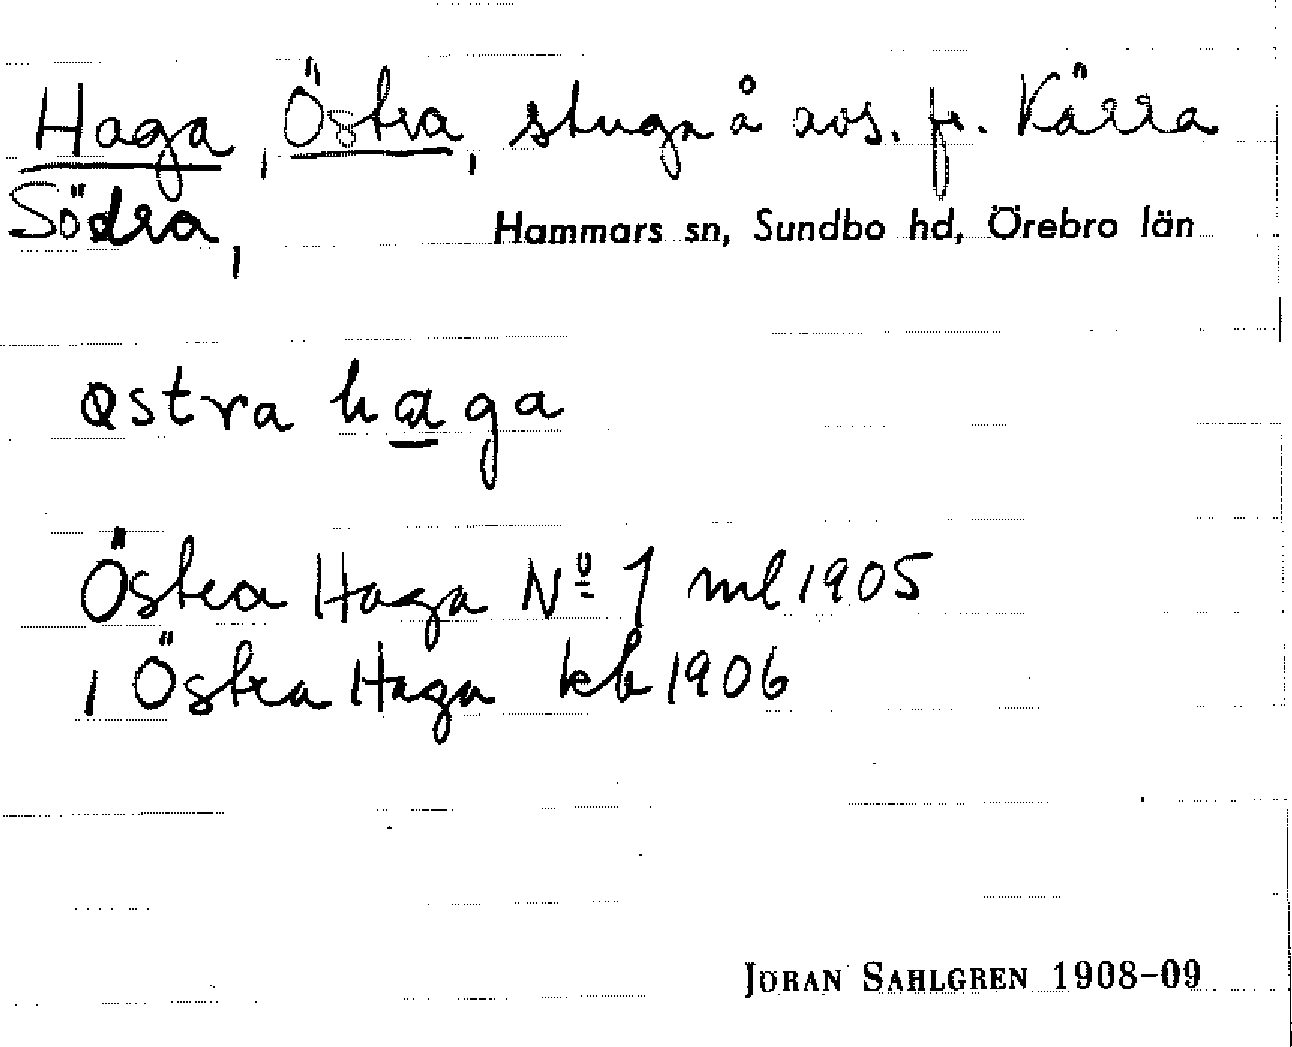 Haga, Östra, stuga å avs. fr. Kärra
Södra,
Hammars sn, Sundbo hd, Örebro län
Qstra haga
Östra Haga Nº 1 ml 1905
1 Östra Haga kb 1906
JÖRAN SAHLGREN 1908-09